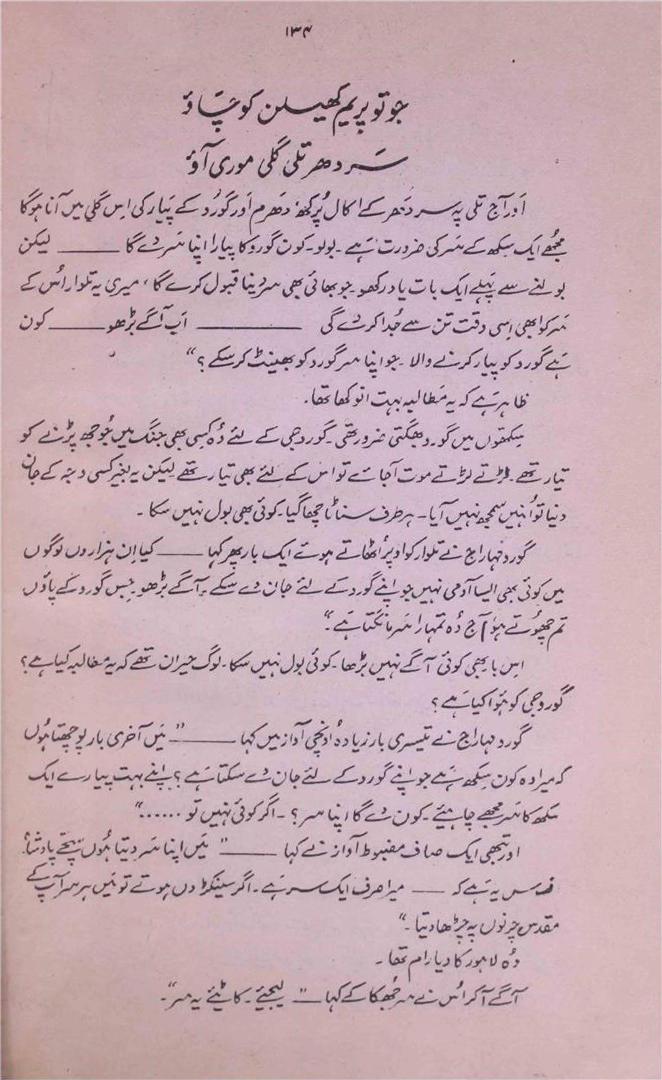 ۱۳۴
جو تو پریم کھیلن کو چاؤ
سر دھر تلی گلی موری آؤ
اور آج تلی پہ سر دھر کے اکال پُرکھ دھرم اور گورو کے پیار کی اِس گلی میں آنا ہوگا
مجھے ایک سکھ کے سر کی ضرورت ہے۔ بولو۔ کون گورو کا پیارا اپنا سر دے گا ——— لیکن
بولنے سے پہلے ایک بات یاد رکھو۔ جو بھائی بھی سر دینا قبول کرے گا، میری یہ تلوار اُس کے
سر کو ابھی اِسی وقت تن سے جُدا کر دے گی ——— اب آگے بڑھو ——— کون
ہے گورو کو پیار کرنے والا۔ جو اپنا سر گورو کو بھینٹ کر سکے ؟“
ظاہر ہے کہ یہ مطالبہ بہت انوکھا تھا۔
سِکھوں میں گورو بھگتی ضرور تھی۔ گورو جی کے لئے وُہ کسی بھی جنگ میں جُوجھ پڑنے کو
تیار تھے۔ لڑتے لڑتے موت آجائے تو اس کے لئے بھی تیار تھے لیکن یہ بغیر کسی وجہ کے جان
دینا تو اُنہیں سمجھ نہیں آیا۔ ہر طرف سناٹا چھا گیا۔ کوئی بھی بول نہیں سکا۔
گورو مہاراج نے تلوار کو اوپر اُٹھاتے ہوئے ایک بار پھر کہا ——— کیا اِن ہزاروں لوگوں
میں کوئی بھی ایسا آدمی نہیں جو اپنے گورو کے لئے جان دے سکے۔ آگے بڑھو۔ جِس گورو کے پاؤں
تم چھُوتے ہو آج وُہ تمہارا سر مانگتا ہے۔“
اس با بھی کوئی آگے نہیں بڑھا۔ کوئی بول نہیں سکا۔ لوگ حیران تھے کہ یہ مطالبہ کیا ہے؟
گورو جی کو ہُوا کیا ہے؟
گورو مہاراج نے تیسری بار زیادہ اُونچی آواز میں کہا ——— ”میں آخری بار پوچھتا ہُوں
کہ میرا وہ کون سِکھ ہے جو اپنے گورو کے لئے جان دے سکتا ہے؟ اپنے بہت پیارے ایک
سکھ کا سر مجھے چاہیئے۔ کون دے گا اپنا سر؟۔ اگر کوئی نہیں تو ......“
اور تبھی ایک صاف مضبوط آواز نے کہا ——— ”میں اپنا سر دیتا ہُوں سچّے پادشاہ!
یہ ہے کہ —— میرا صرف ایک سر ہے۔ اگر سینکڑوں ہوتے تو میں ہر سر آپ کے
مقدس چرنوں پہ چڑھا دیتا۔“
وُہ لاہور کا دیا رام تھا۔
آگے آ کر اُس نے سر جُھکا کے کہا — ”لیجئے۔ کاٹیئے یہ سر“۔